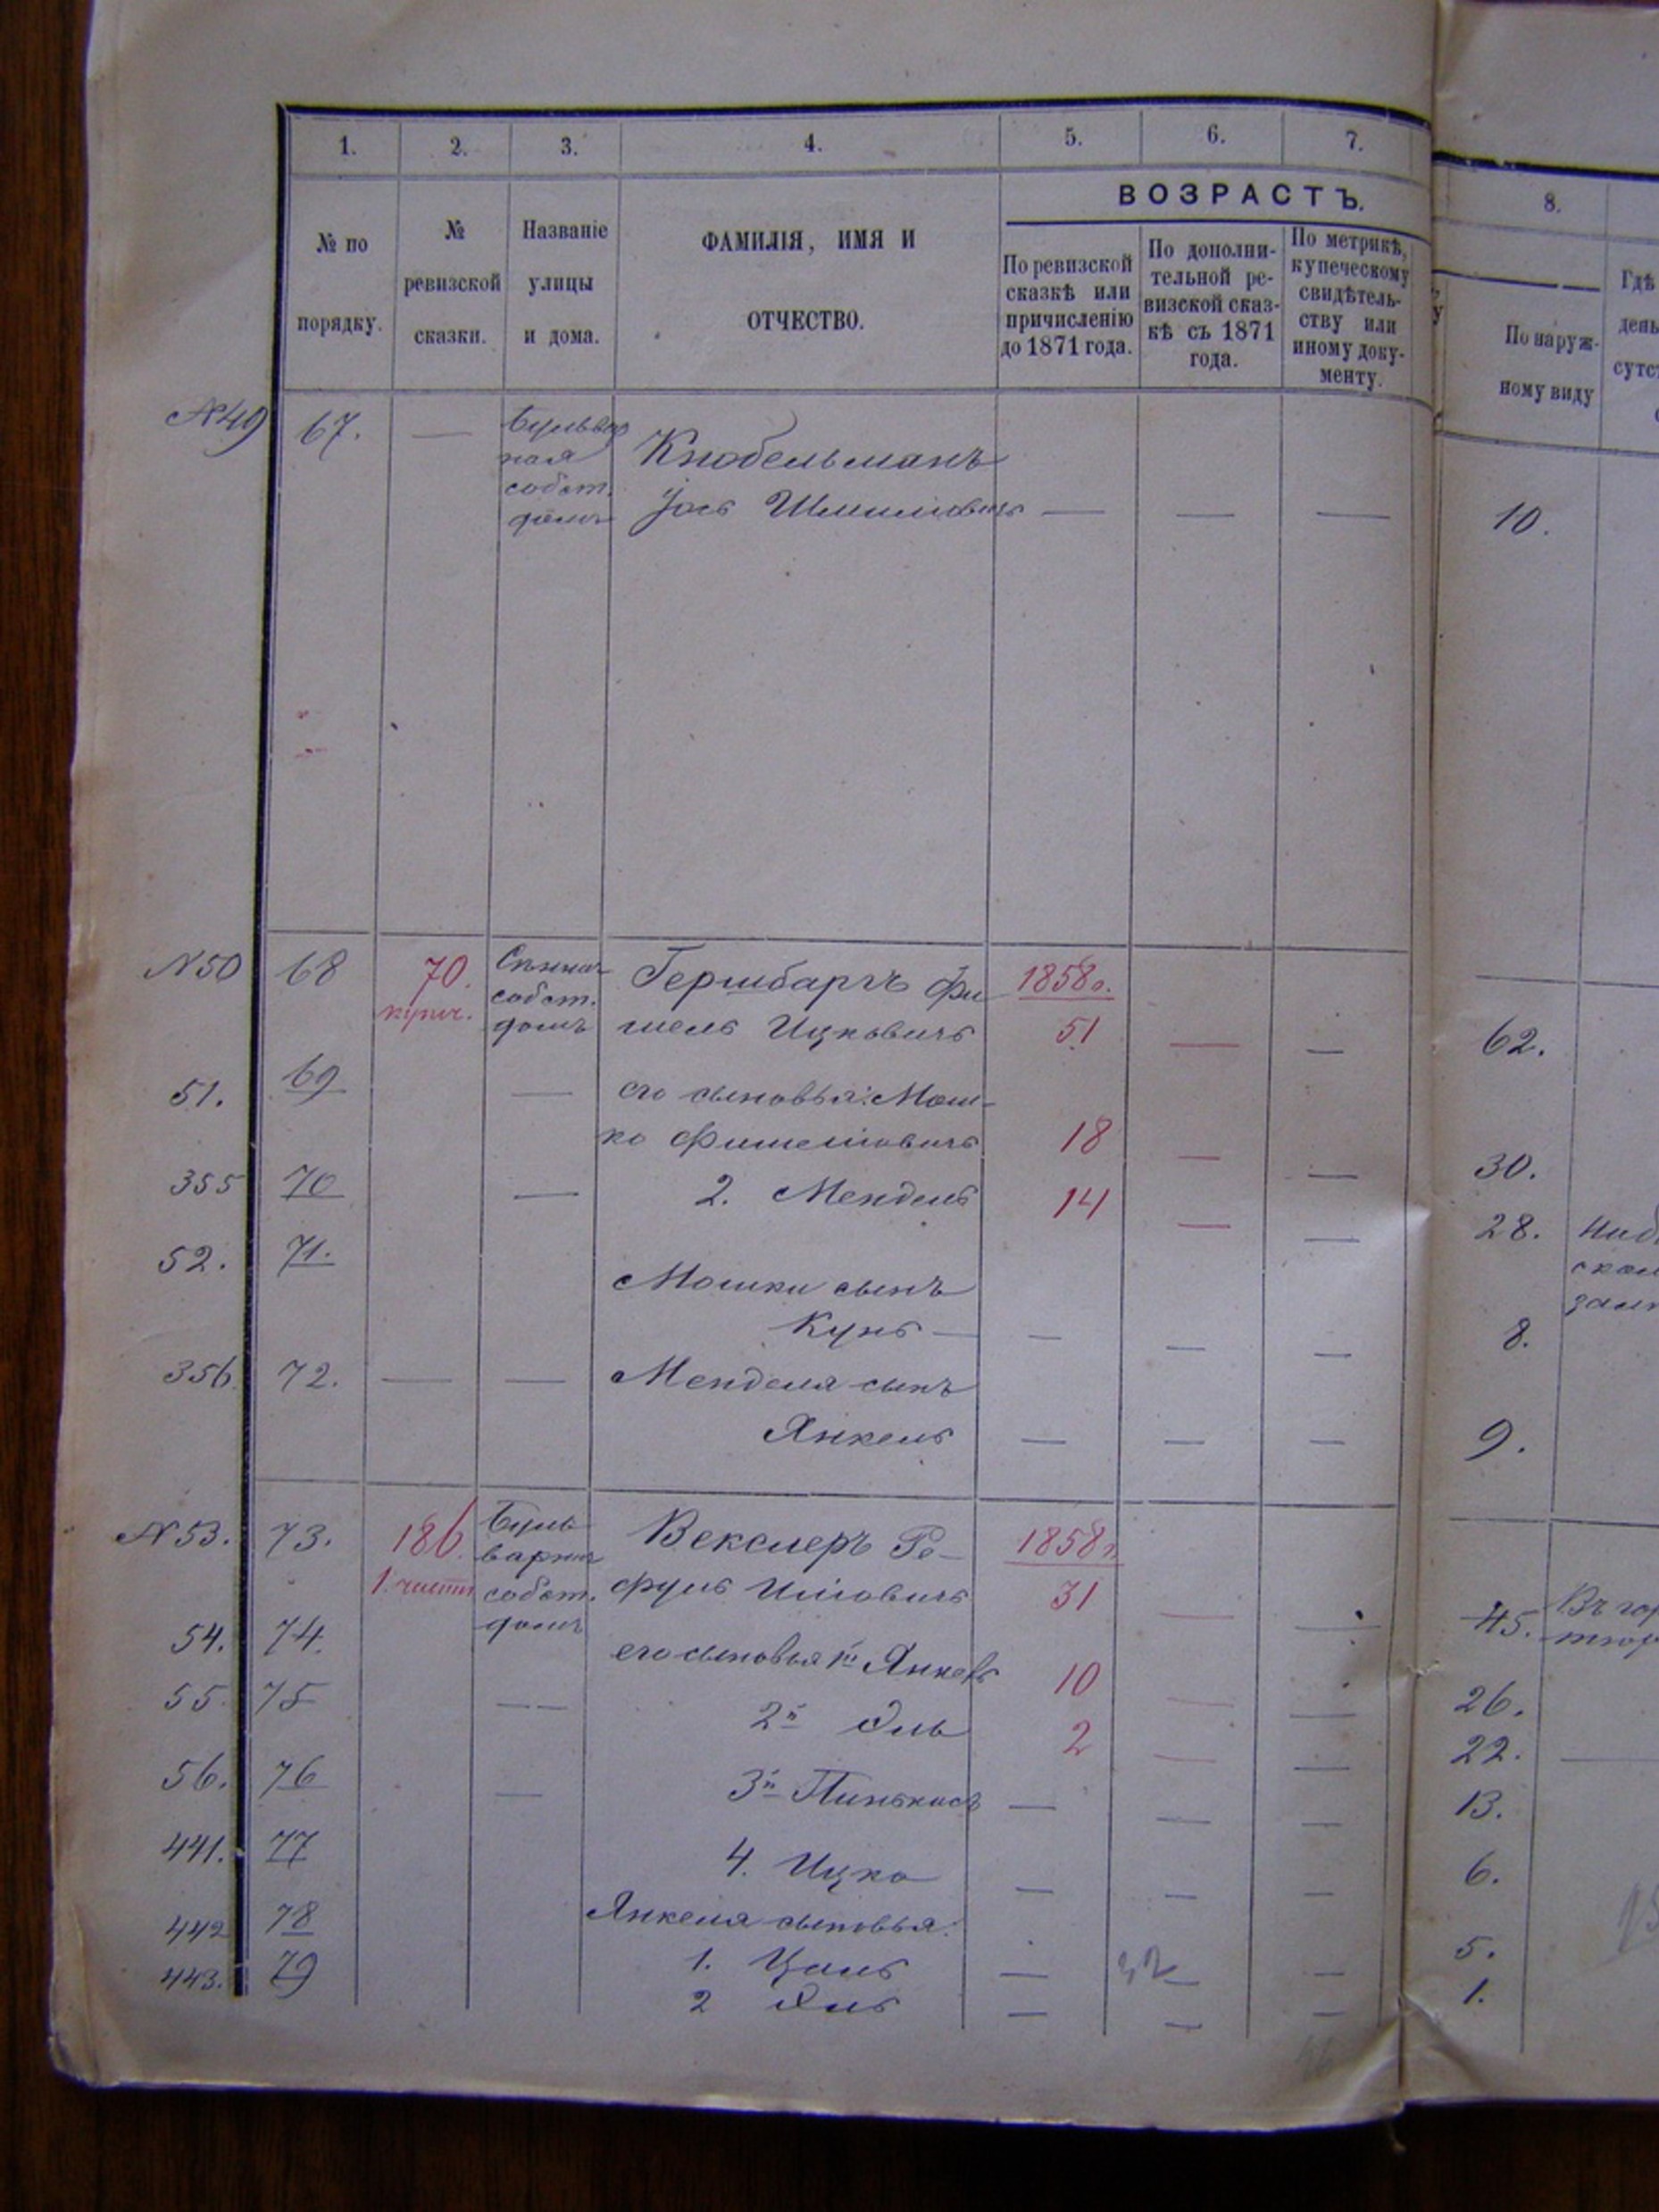 1. 2. 3. 4. 5. 6. 7. 8.
ВОЗРАСТЪ.
№ по
порядку.
№
ревизской
сказки.
Названіе
улицы
и дома.
ФАМИЛІЯ, ИМЯ И
ОТЧЕСТВО.
По ревизской
сказкѣ или
причисленію
до 1871 года.
По дополни-
тельной ре-
визской сказ-
кѣ съ 1871
года.
По метрикѣ,
купеческому
свидѣтель-
ству или
иному доку-
менту.
По наруж-
ному виду
Гдѣ
день
сутст
N49 67. —
Бульвар
ная
собст.
домъ
Кнобельманъ
Іось Шмилiовичъ — — — 10.
N50 68 70.
купч.
собст.
домъ
Гершбаргъ Фи
шель Ицковичъ
1858 г.
51 — — 62.
51. 69 —
его сыновья: Мош-
ко Фишеліовичъ 18 — — 30.
355 70 — 2. Мендель 14 — — 28.
52. 71.
Мошки сынъ
Кунь — — — — 8.
356 72. — — Менделя сынъ
Янкель — — — 9.
N53. 73. 186.
1. части
Буль
варная
собст.
домъ
Векслеръ Ре-
фуль Иліовичъ
1858 г.
31 — — 45.
Въ гор
54. 74. его сыновья 1й Янкель 10 — — 26.
55. 75 — — 2й Эль 2 — — 22. —
56. 76 — 3й Пинькасъ — — — 13.
441. 77 4. Ицко — — — 6.
Янкеля сыновья:
442 78 1. Цаль — — — 5.
443. 79 2 Эль — — — 1.